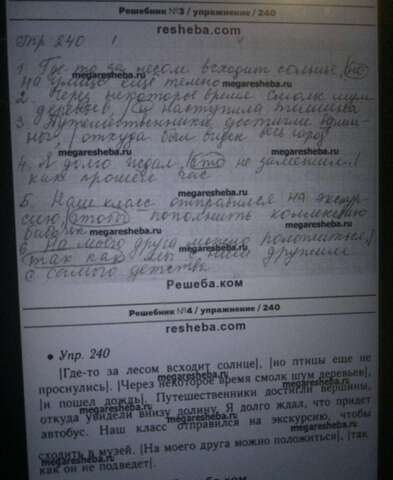 Решебник №3 / упражнение / 240
resheba.com
Упр 240
1. Где-то за лесом всходит солнце, но
на улице еще темно
megaresheba.ru
2. Через некоторое время смолк шум
деревьев, и наступила тишина
megaresheba.ru
3. Путешественники достигли
откуда был виден весь город
megaresheba.ru
4. Я долго ждал, что не заметил,
как прошёл час
megaresheba.ru
5. Наш класс отправился на экскур
сию, чтобы пополнить коллекцию
megaresheba.ru
6. На моего друга можно положиться,
так как мы с ним дружим
с самого детства
megaresheba.ru
Решеба.ком
Решебник №4 / упражнение / 240
resheba.com
• Упр. 240
|Где-то за лесом всходит солнце|, |но птицы еще не
проснулись|. |Через некоторое время смолк шум деревьев|,
|и пошел дождь|. Путешественники достигли вершины,
откуда увидели внизу долину. Я долго ждал, что придет
автобус. Наш класс отправился на экскурсию, чтобы
сходить в музей. |На моего друга можно положиться|, |так
как он не подведет|.
megaresheba.ru